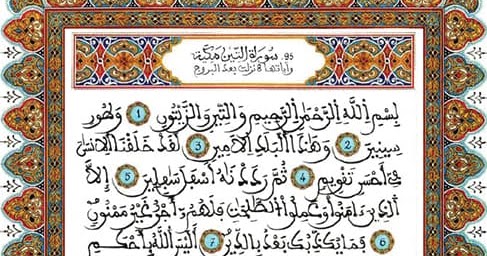 95 سورة التين مكية
وآياتها 8 نزلت بعد البروج
بسم الله الرحمن الرحيم والتين والزيتون 1 وطور
سينين 2 وهذا البلد الامين 3 لقد خلقنا الانسان
في أحسن تقويم 4 ثم رددناه أسفل سافلين 5 إلا
الذين ءامنوا وعملوا الصالحات فلهم أجر غير ممنون
6 فما يكذبك بعد بالدين 7 أليس الله بأحكم